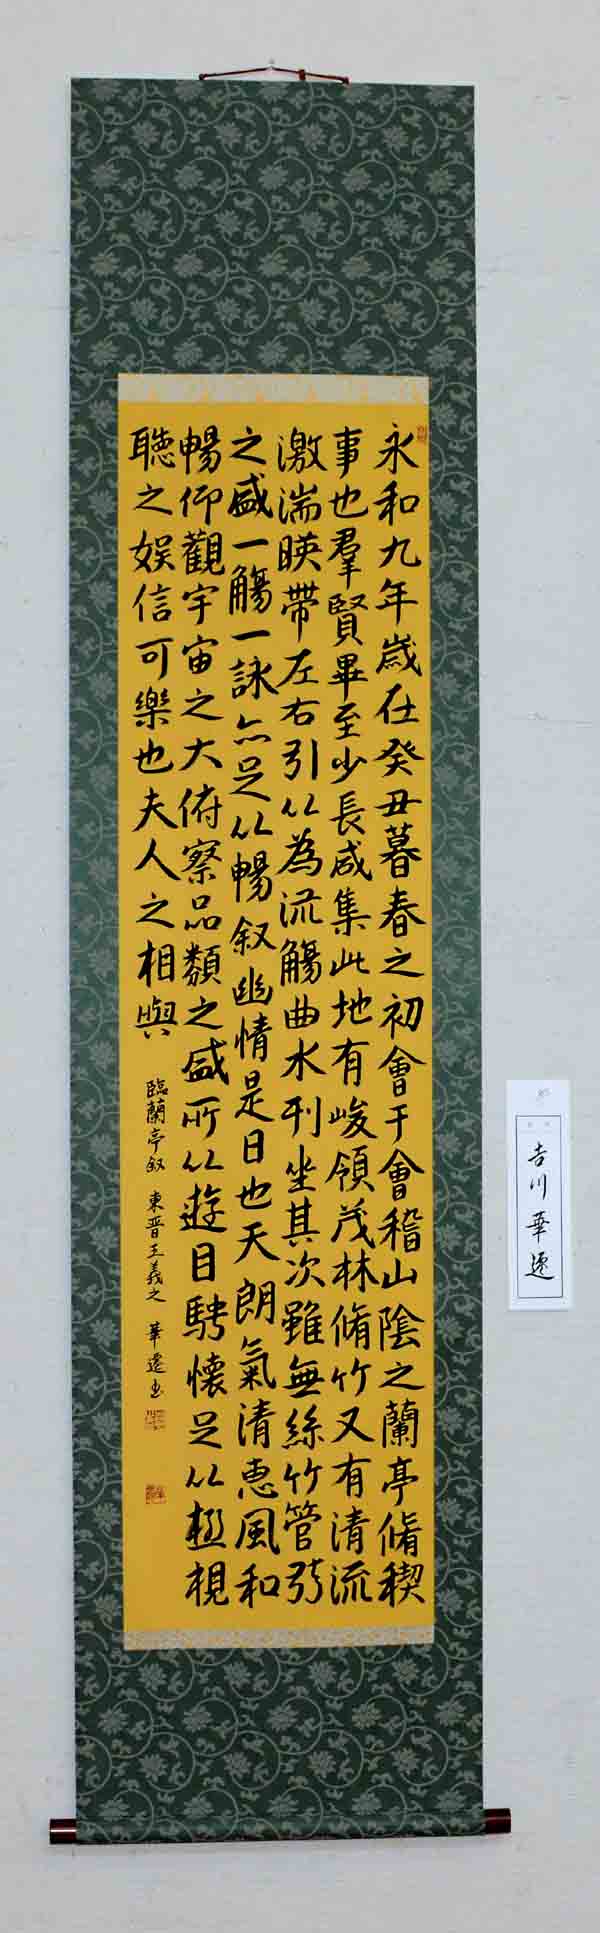 永和九年歳在癸丑暮春之初會于會稽山陰之蘭亭脩稧
事也羣賢畢至少長咸集此地有峻領茂林脩竹又有清流
激湍暎帶左右引以為流觴曲水列坐其次雖無絲竹管弦
之盛一觴一詠亦足以暢叙幽情是日也天朗氣清恵風和
暢仰觀宇宙之大俯察品類之盛所以遊目騁懐足以極視
聴之娯信可樂也夫人之相與
臨蘭亭叙 東晋王羲之 華遷書
吉川華遷